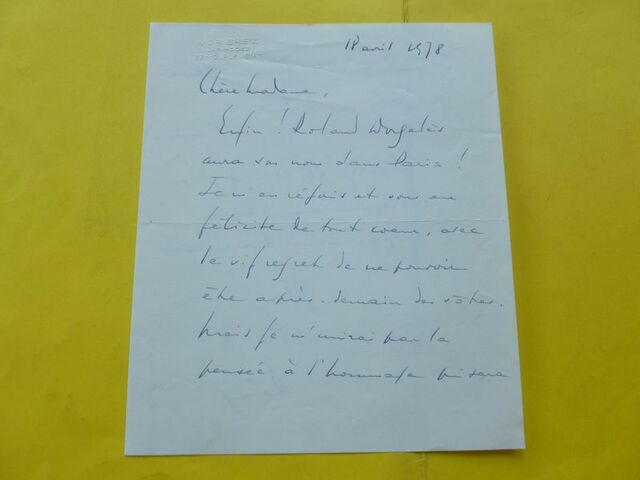 MOR BREIZ
18 avril 1978
Chère Madame,
Enfin ! Roland Dorgelès
aura son nom dans Paris !
Je m'en réjouis et vous en
félicite de tout coeur, avec
le vif regret de ne pouvoir
être après-demain des vôtres.
Mais je m'unirai par la
pensée à l'hommage qui sera